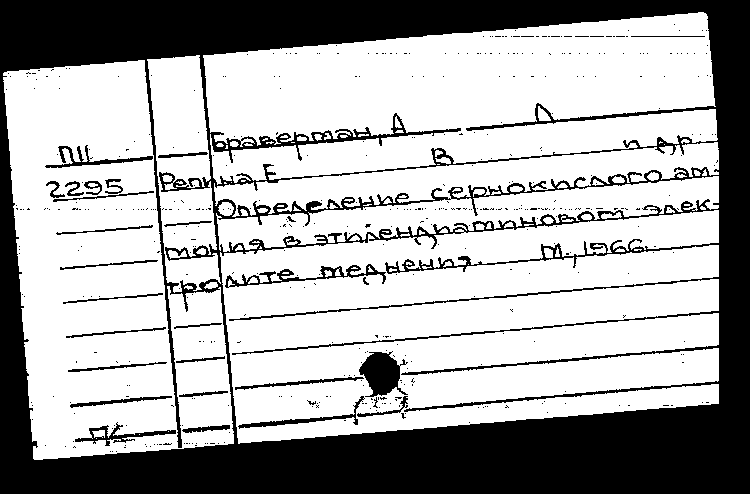 Браверман, А Л
П11
2295 Репина, Е В и др
Определение сернокислого ам-
мония в этилендиаминовом элек-
тролите меднения. М., 1966.